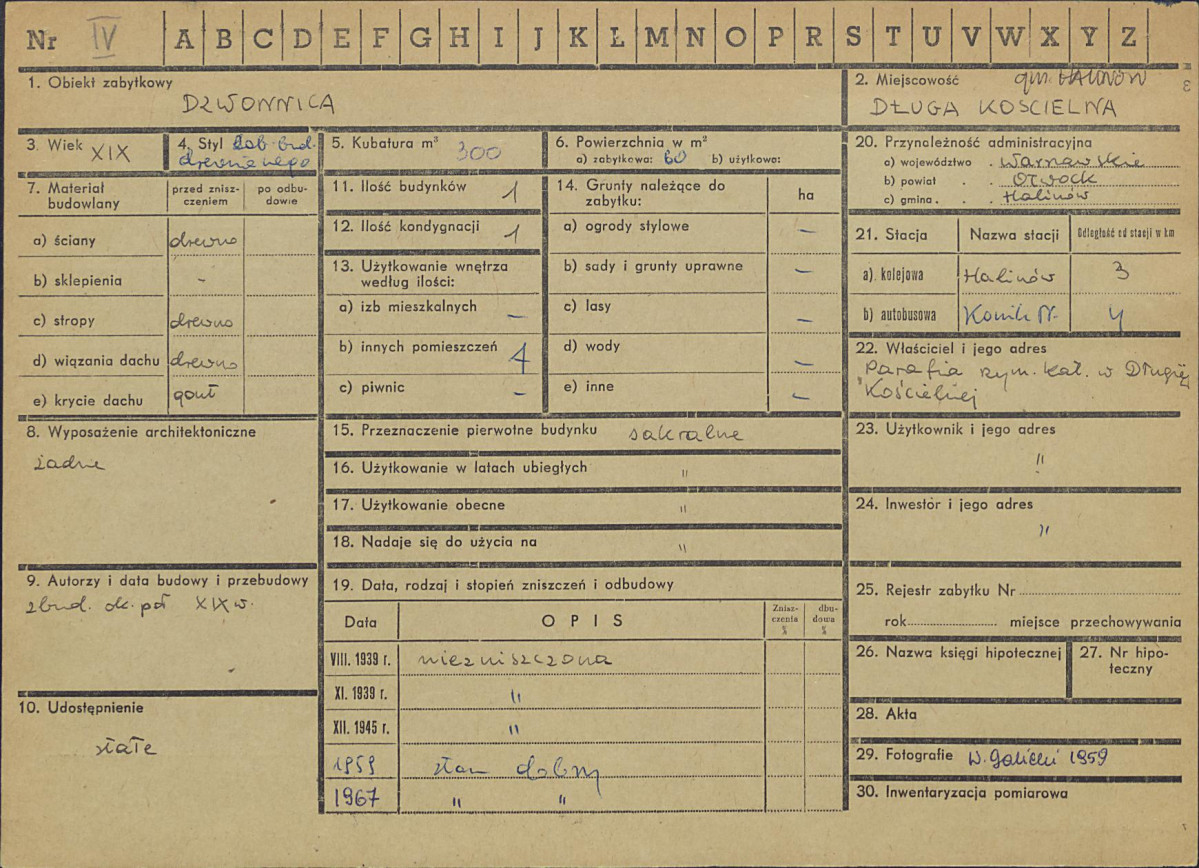 Nr IV A B C D E F G H I J K Ł M N O P R S T U V W X Y Z
1. Obiekt zabytkowy
DZWONNICA
2. Miejscowość gm. HALINÓW
DŁUGA KOSCIELNA
3. Wiek XIX
4. Styl bud.
drewnianego
5. Kubatura m³ 300
6. Powierzchnia w m²
a) zabytkowa: 60 b) użytkowa:
7. Materiał budowlany
przed zniszczeniem
po odbudowie
a) ściany drewno
b) sklepienia -
c) stropy drewno
d) wiązania dachu drewno
e) krycie dachu gont
8. Wyposażenie architektoniczne
żadne
9. Autorzy i data budowy i przebudowy
zbud. ok. poł XIX w.
10. Udostępnienie
stałe
11. Ilość budynków 1
12. Ilość kondygnacji 1
13. Użytkowanie wnętrza
według ilości:
a) izb mieszkalnych –
b) innych pomieszczeń 1
c) piwnic –
14. Grunty należące do
zabytku:
ha
a) ogrody stylowe –
b) sady i grunty uprawne –
c) lasy –
d) wody –
e) inne –
15. Przeznaczenie pierwotne budynku sakralne
16. Użytkowanie w latach ubiegłych "
17. Użytkowanie obecne "
18. Nadaje się do użycia na "
19. Data, rodzaj i stopień zniszczeń i odbudowy
Data
OPIS
Zniszczenia %
dbudowa %
VIII. 1939 r. niezniszczona
XI. 1939 r. "
XII. 1945 r. "
1959 stan dobry
1967 " "
20. Przynależność administracyjna
a) województwo . Warszawskie
b) powiat . . Otwock
c) gmina . . Halinów
21. Stacja
Nazwa stacji
Odległość od stacji w km
a). kolejowa Halinów 3
b) autobusowa Konik N. 4
22. Właściciel i jego adres
Parafia rzym. kat. w Długiej
Kościelnej
23. Użytkownik i jego adres
"
24. Inwestor i jego adres
"
25. Rejestr zabytku Nr
rok miejsce przechowywania
26. Nazwa księgi hipotecznej
27. Nr hipoteczny
28. Akta
29. Fotografie W. Galicki 1959
30. Inwentaryzacja pomiarowa